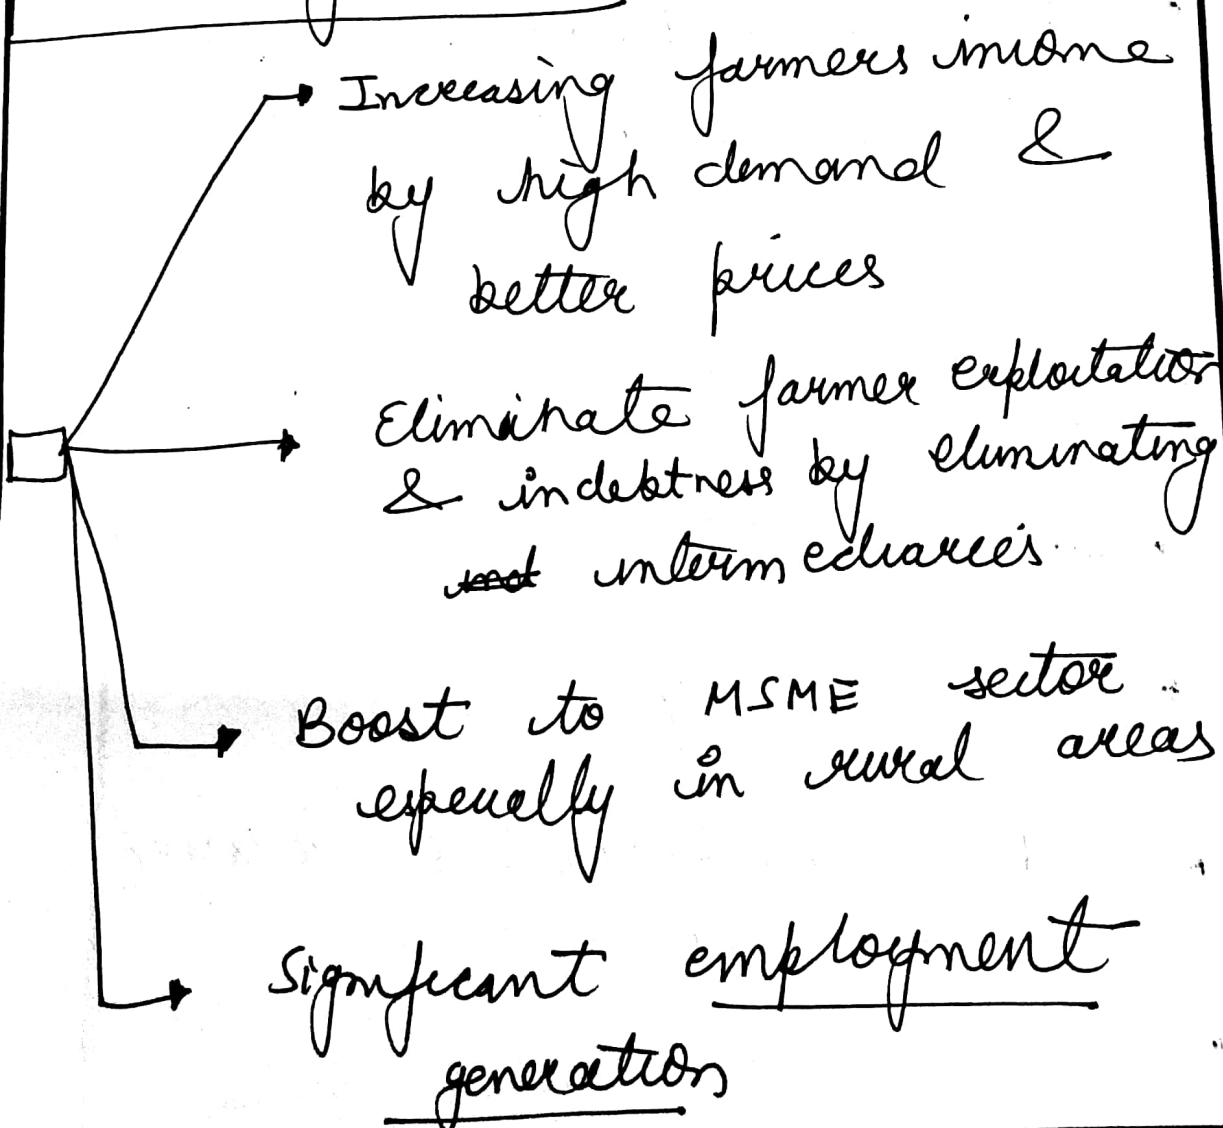 Increasing farmers income
by high demand &
better prices
Eliminate farmer exploitation
& indebtness by eliminating
intermediaries
Boost to MSME sector
especially in rural areas
Significant employment
generation